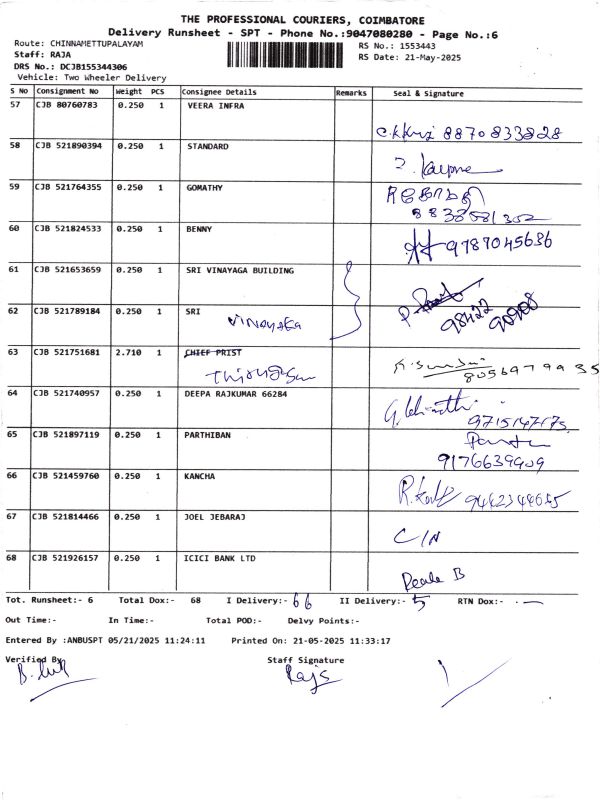 THE PROFESSIONAL COURIERS, COIMBATORE
Delivery Runsheet - SPT - Phone No.:9047080280 - Page No.:6
Route: CHINNAMETTUPALAYAM RS No.: 1553443
Staff: RAJA RS Date: 21-May-2025
DRS No.: DCJB155344306
Vehicle: Two Wheeler Delivery
S No Consignment No Weight PCS Consignee Details Remarks Seal & Signature
57 CJB 80760783 0.250 1 VEERA INFRA
8870833828
58 CJB 521890394 0.250 1 STANDARD
59 CJB 521764355 0.250 1 GOMATHY
60 CJB 521824533 0.250 1 BENNY
9787045636
61 CJB 521653659 0.250 1 SRI VINAYAGA BUILDING
62 CJB 521789184 0.250 1 SRI
VINAYAKA
98422
90908
63 CJB 521751681 2.710 1 CHIEF PRIST
64 CJB 521740957 0.250 1 DEEPA RAJKUMAR 66284
65 CJB 521897119 0.250 1 PARTHIBAN
9176639909
66 CJB 521459760 0.250 1 KANCHA
67 CJB 521814466 0.250 1 JOEL JEBARAJ
C/N
68 CJB 521926157 0.250 1 ICICI BANK LTD
B
Tot. Runsheet:- 6 Total Dox:- 68 I Delivery:- 66 II Delivery:- 5 RTN Dox:- -
Out Time:- In Time:- Total POD:- Delvy Points:-
Entered By :ANBUSPT 05/21/2025 11:24:11 Printed On: 21-05-2025 11:33:17
Verified By Staff Signature